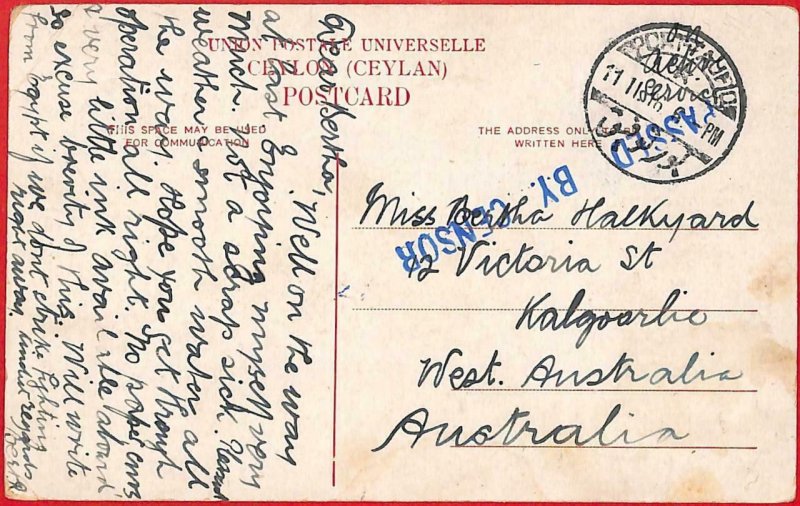 UNION POSTALE UNIVERSELLE
CEYLON (CEYLAN)
POSTCARD
THIS SPACE MAY BE USED
FOR COMMUNICATION
THE ADDRESS ONLY TO BE
WRITTEN HERE
PORT SAID
PM
PASSED BY CENSOR
Miss Bertha Halkyard
12 Victoria St
Kalgoorlie
West. Australia
Australia
Dear Bertha, Well on the way
at last Enjoying myself very
much. Not a scrap sick.
weather & smooth water all
the way. Hope you get through
operation all right. No paper envs
& very little ink available aboard
so excuse brevity of this. Will write
from Egypt if we dont strike fighting
right away. Kindest regards